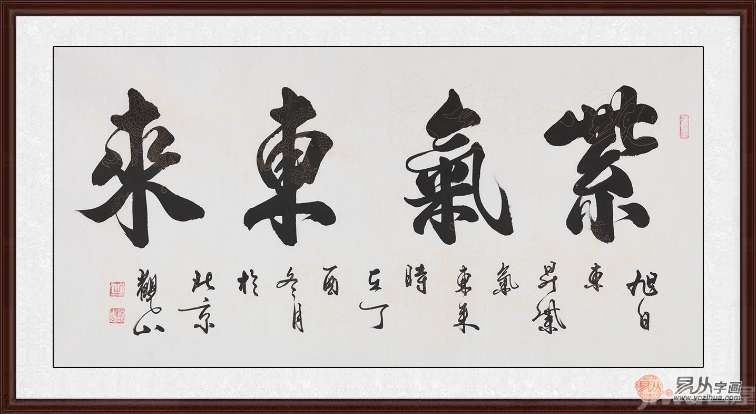 紫氣東來
旭日
東
昇紫
氣
東来
時
在丁
酉
冬月
於
北京
觀山
易从字画
www.yczihua.com